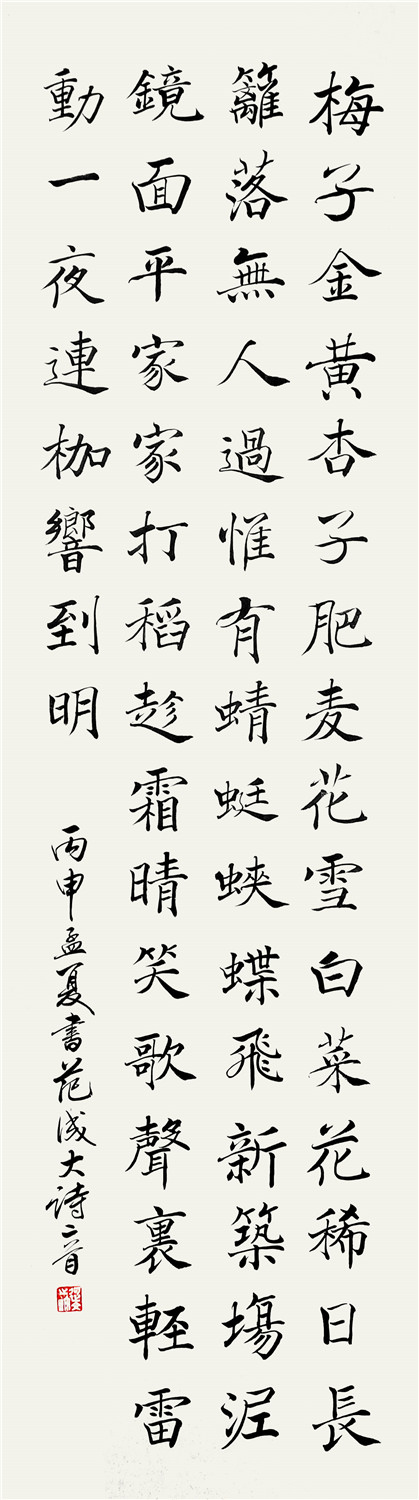 梅子金黄杏子肥麦花雪白菜花稀日長
籬落無人過惟有蜻蜓蛺蝶飛新築塲泥
鏡面平家家打稻趁霜晴笑歌聲裏輕雷
動一夜連枷響到明
丙申孟夏書范成大詩二首